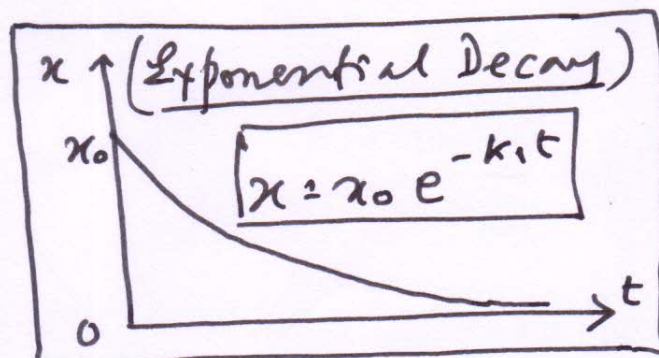 x (Exponential Decay)
x₀
x = x₀ e^{-k₁t}
t
0